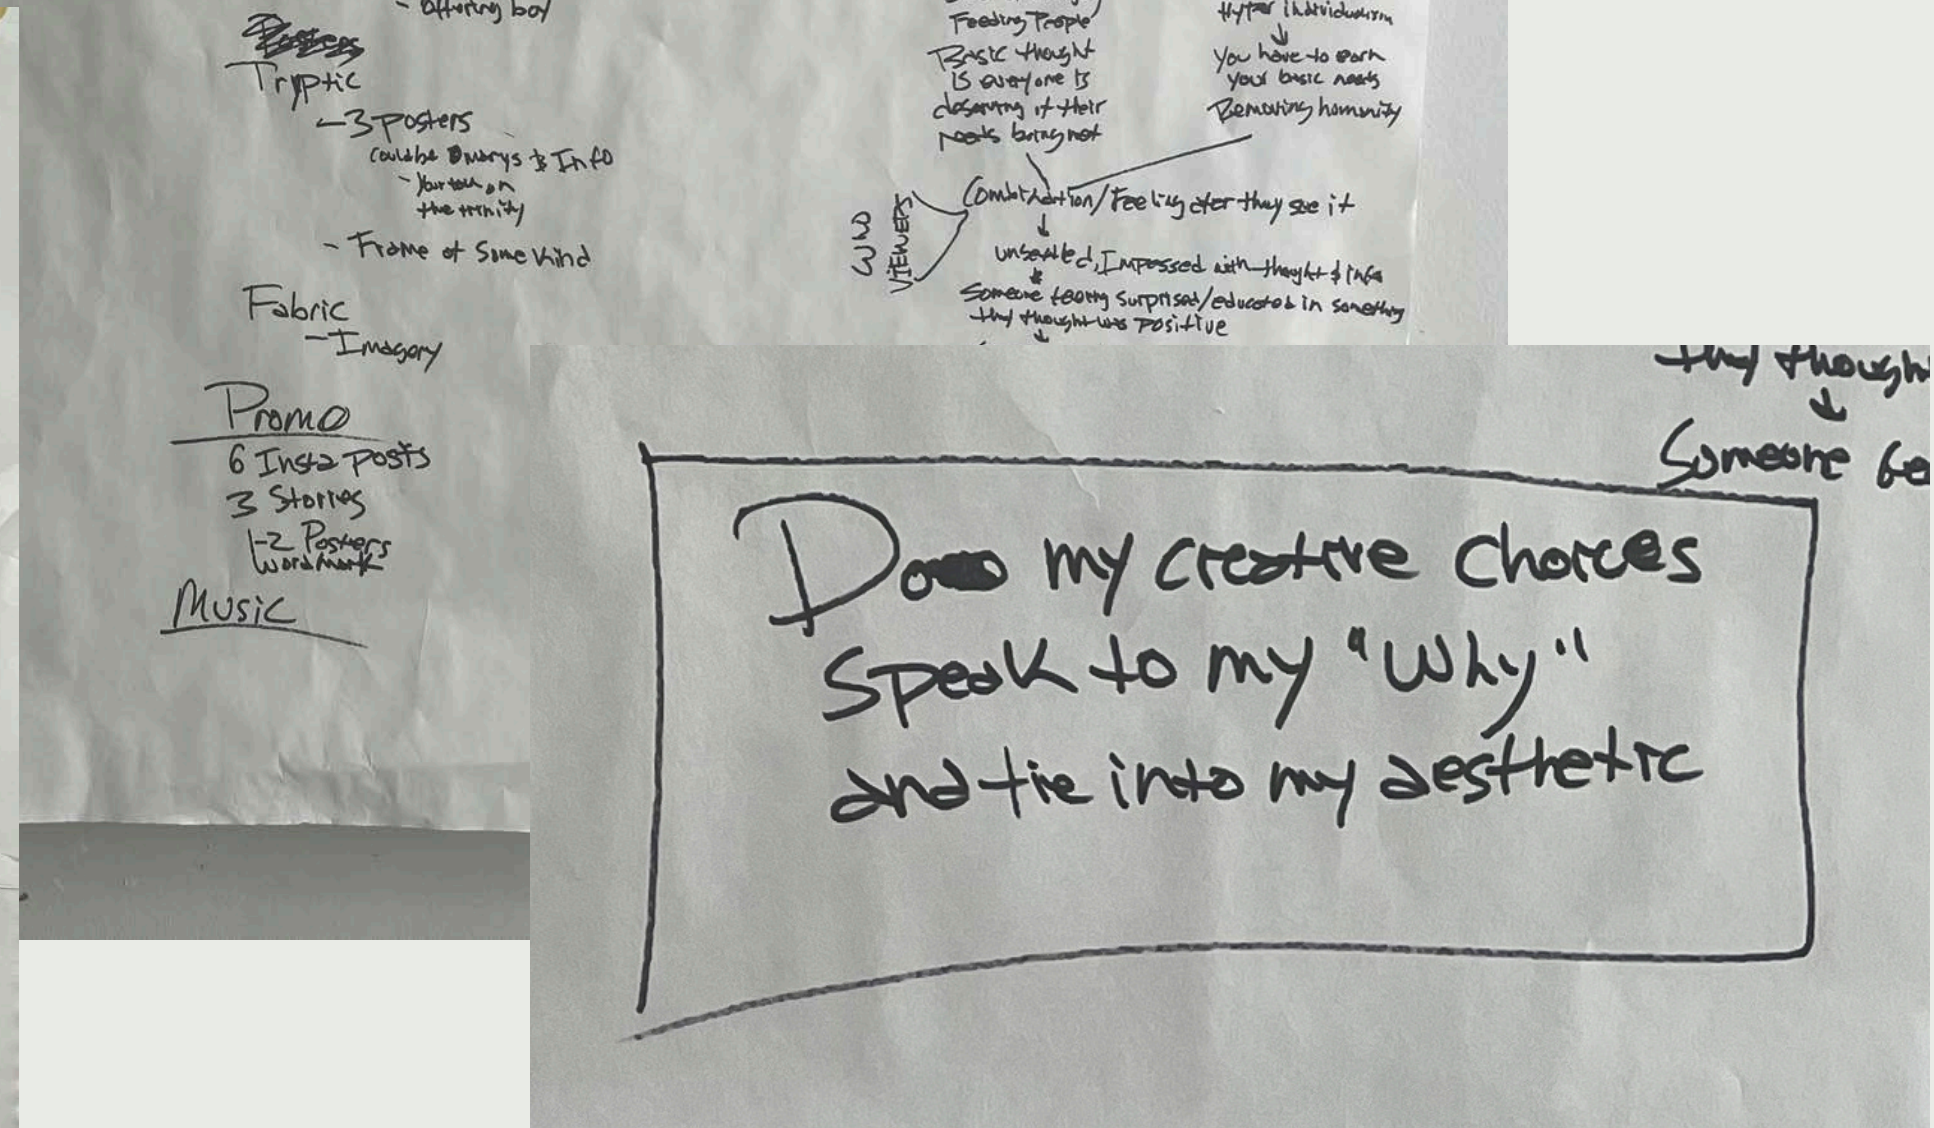 - Offering box
Tryptic
- 3 posters
could be & Info
- Your take on
the trinity
- Frame of Some kind
Fabric
- Imagery
Promo
6 Insta posts
3 Stories
1-2 Posters
Wordmark
Music
Feeding People
Basic thought
is everyone is
deserving of their
needs being met
Hyper individualism
↓
You have to earn
your basic needs
Removing humanity
VIEWERS
Combination/Feeling after they see it
↓
unsettled, with thought & info
Someone feeling surprised/educated in something
they thought was positive
↓
they though
↓
Someone
Do my creative choices
Speak to my "Why"
and tie into my aesthetic